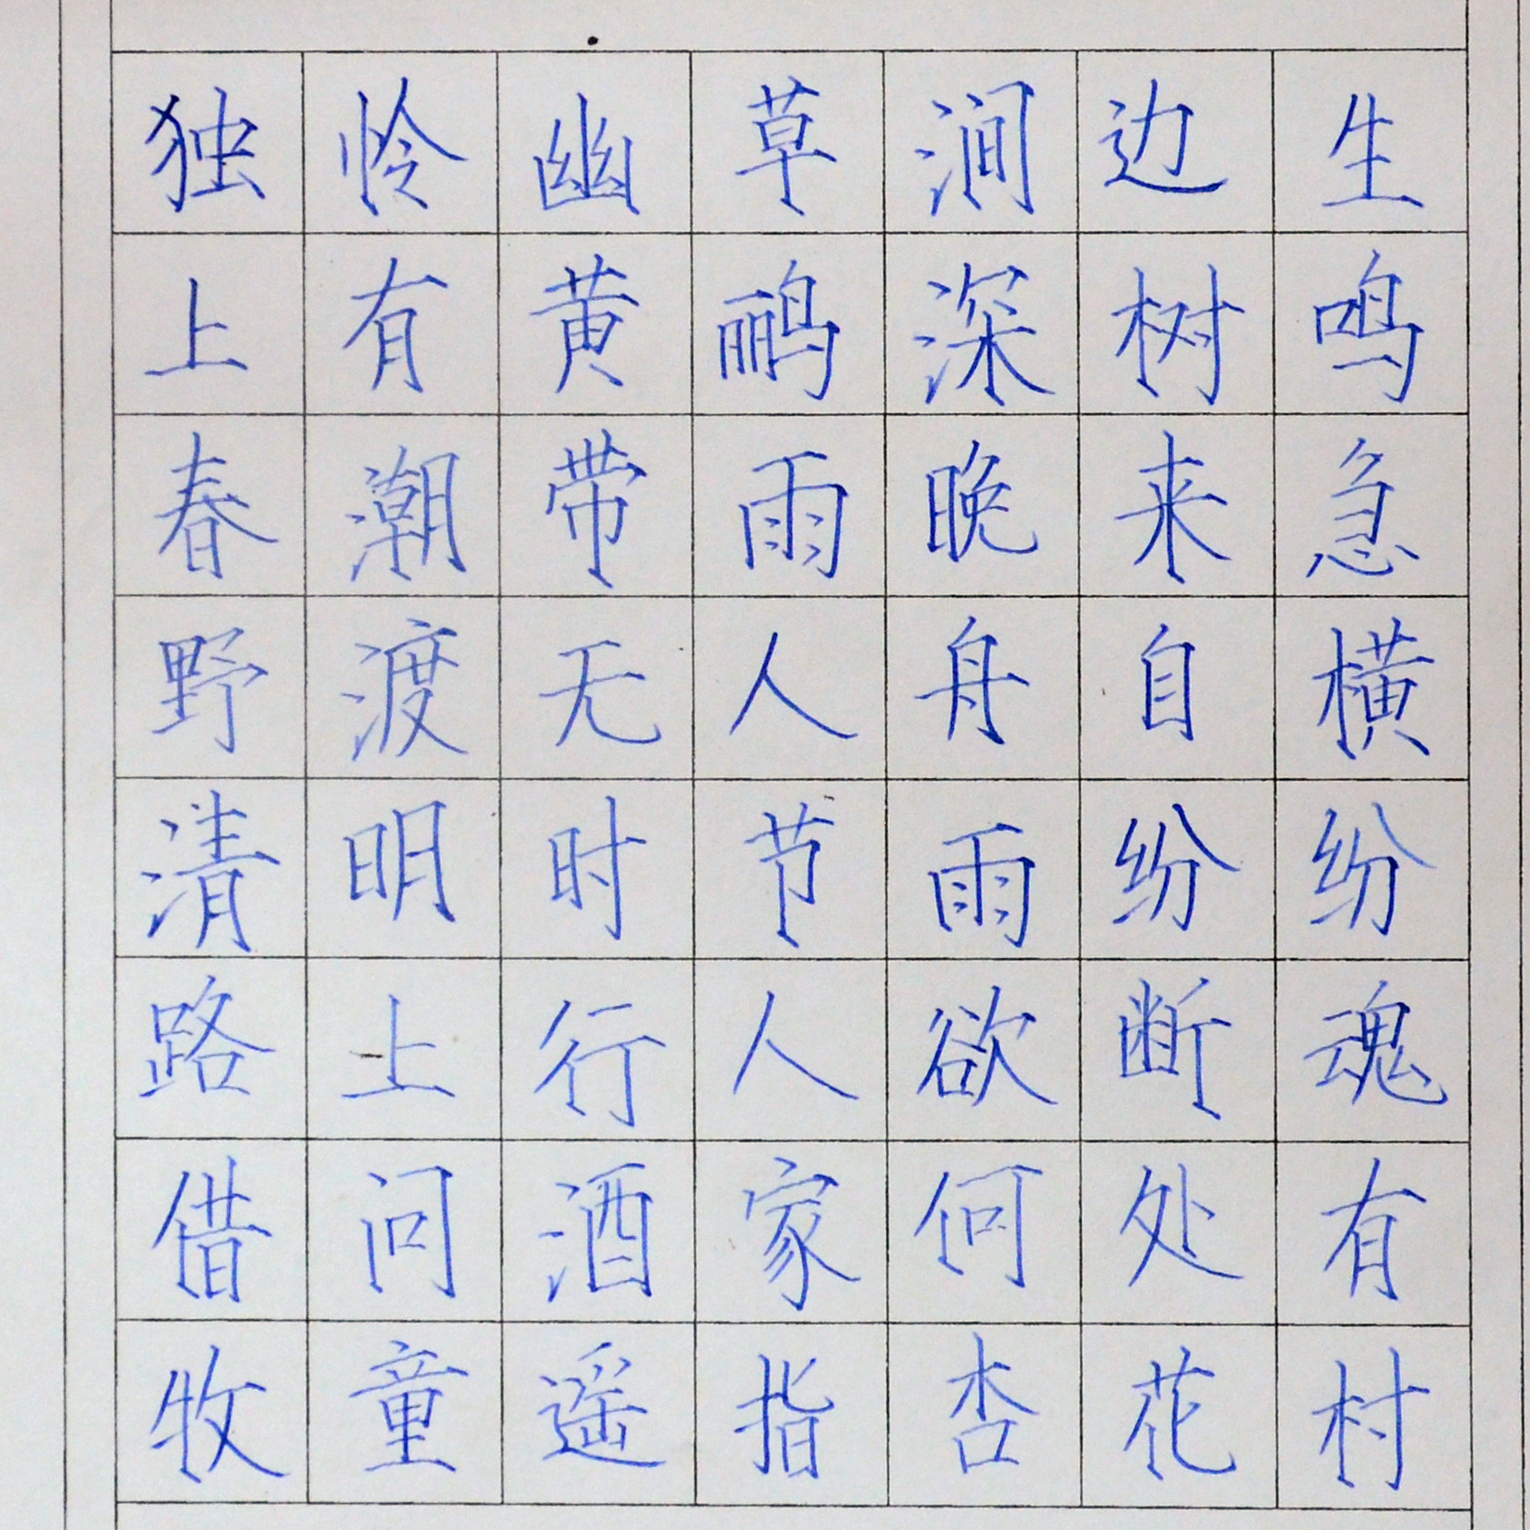 独怜幽草涧边生
上有黄鹂深树鸣
春潮带雨晚来急
野渡无人舟自横
清明时节雨纷纷
路上行人欲断魂
借问酒家何处有
牧童遥指杏花村